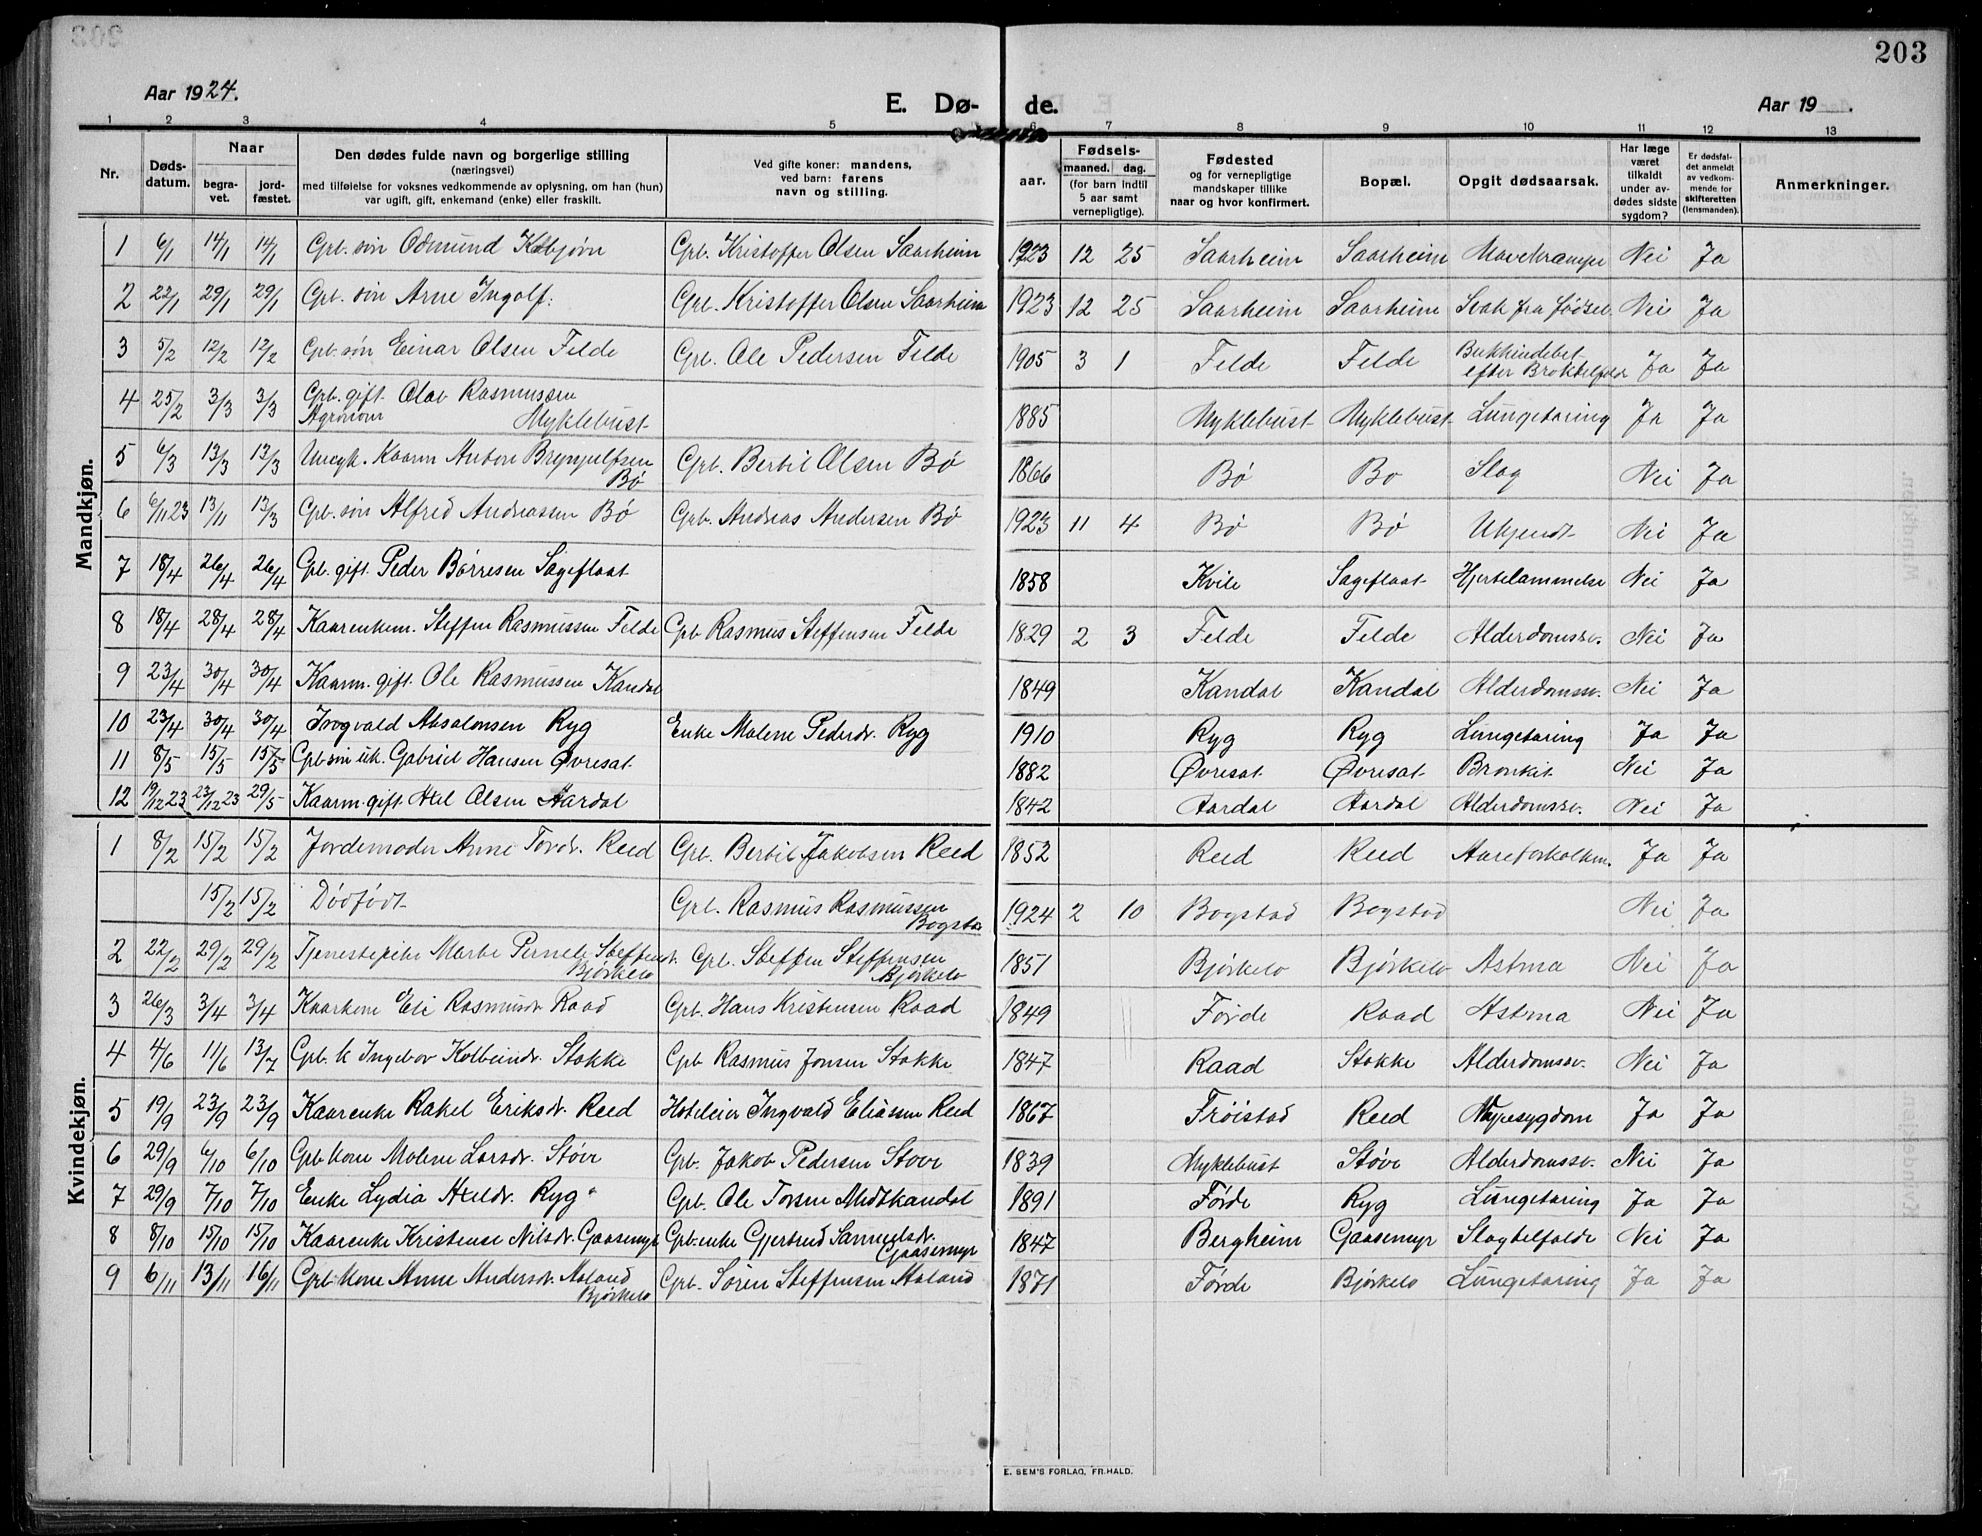 203
Aar 1924.
E. Dø- de.
Aar 19 .
1 2 3 4 5 6 7 8 9 10 11 12 13
Nr. | Døds-datum. | Naar begra-vet. | jord-fæstet. | Den dødes fulde navn og borgerlige stilling (næringsvei) med tilføielse for voksnes vedkommende av oplysning, om han (hun) var ugift, gift, enkemand (enke) eller fraskilt. | Ved gifte koner: mandens, ved barn: farens navn og stilling. | aar. | Fødsels- maaned. dag. (for barn indtil 5 aar samt vernepligtige). | Fødested og for vernepligtige mandskaper tillike naar og hvor konfirmert. | Bopæl. | Opgit dødsaarsak. | Har læge været tilkaldt under av-dødes sidste sygdom? | Er dødsfal-det anmeldt av vedkom-mende for skifteretten (lensmanden). | Anmerkninger.
Mandkjøn.
1 6/1 14/1 14/1 Grb. søn Odmund Kolbjørn Grb. Kristoffer Olsen Saarheim 1923 12 25 Saarheim Saarheim Mavekrampe Nei Ja
2 22/1 29/1 29/1 Grb. søn Arne Ingolf: Grb. Kristoffer Olsen Saarheim 1923 12 25 Saarheim Saarheim Svak fra fødsel Nei Ja
3 5/2 12/2 12/2 Grb. søn Einar Olsen Felde Grb. Ole Pedersen Felde 1905 3 1 Felde Felde Bukhindebet. efter Ja Ja
4 25/2 3/3 3/3 Grb. gift. Olav Rasmussen Agronom Myklebust 1885 Myklebust Myklebust Lungetæring Ja Ja
5 6/3 13/3 13/3 Kaarm Anton Brynjulfsen Bø Grb. Bertil Olsen Bø 1866 Bø Bø Slag Nei Ja
6 6/11 23 13/11 13/3 Grb. søn Alfred Andreassen Bø Grb. Andreas Andersen Bø 1923 11 4 Bø Bø Ukjendt Nei Ja
7 18/4 26/4 26/4 Grb. gift. Peder Børresen Sageflaat 1858 Kvile Sageflaat Hjertelammelse Nei Ja
8 18/4 28/4 28/4 Kaarenkem. Steffen Rasmussen Felde Grb Rasmus Steffensen Felde 1829 2 3 Felde Felde Alderdomssv. Nei Ja
9 23/4 30/4 30/4 Kaarm. gift. Ole Rasmussen Kandal 1849 Kandal Kandal Alderdomssv. Nei Ja
10 23/4 30/4 30/4 Ingvald Absalonsen Ryg Enke Malene Pedersdr. Ryg 1910 Ryg Ryg Lungetæring Ja Ja
11 8/5 15/5 15/5 Grb søn uk. Gabriel Hansen Øvreset 1882 Øvreset Øvreset Bronkit Nei Ja
12 19/12 23 23/12 23 29/5 Kaarm. gift. Olsen Aardal 1842 Aardal Aardal Alderdomssv. Nei Ja
Kvindekjøn.
1 8/2 15/2 15/2 Jordemoder Anne Tordr. Reed Grb. Bertil Jakobsen Reed 1852 Reed Reed Aareforkalkn. Ja Ja
15/2 15/2 Dødfødt Grb. Rasmus Rasmussen Bogstad 1924 2 10 Bogstad Bogstad Nei Ja
2 22/2 29/2 29/2 Tjenestepike Marte Pernele Steffensdt. Bjørkelo Grb. Steffen Steffensen Bjørkelo 1851 Bjørkelo Bjørkelo Astma Nei Ja
3 26/3 3/4 3/4 Kaarkone Eli Rasmusdr. Raad Grb. Hans Kristensen Raad 1849 Førde Raad Astma Nei Ja
4 4/6 11/6 13/7 Grb. k Ingebor Kolbeindr. Stokke Grb Rasmus Jonsen Stokke 1847 Raad Stokke Alderdomssv. Nei Ja
5 19/9 23/9 23/9 Kaarenke Rakel Eriksdr. Reed Hoteleier Ingvald Eliassen Reed 1867 Frøistad Reed Nyresygdom Ja Ja
6 29/9 6/10 6/10 Grb. kone Malene Larsdr. Støve Grb. Jakob Pedersen Støve 1839 Myklebust Støve Alderdomssv. Nei Ja
7 29/9 7/10 7/10 Enke Lydia Ryg Grb. Ole Midtkandal 1891 Førde Ryg Lungetæring Ja Ja
8 8/10 15/10 15/10 Kaarenke Kristense Nilsdr. Gaasemyr Grb. enke Gjertrud Samuelsdr. Gaasemyr 1847 Bergheim Gaasemyr Slagtilfælde Nei Ja
9 6/11 13/11 16/11 Grb. kone Anne Andersdr. Moland Bjørkelo Grb. Søren Steffensen Moland 1871 Førde Bjørkelo Lungetæring Ja Ja
E. SEM'S FORLAG, FR.HALD.